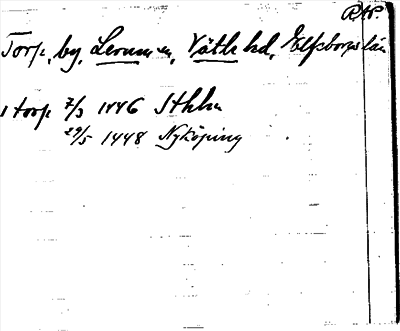 RAP.
Torp, by, Lerum sn, Vätle hd, Elfsborgs län
i torp 7/3 1446 Sthlm
29/5 1448 Nyköping